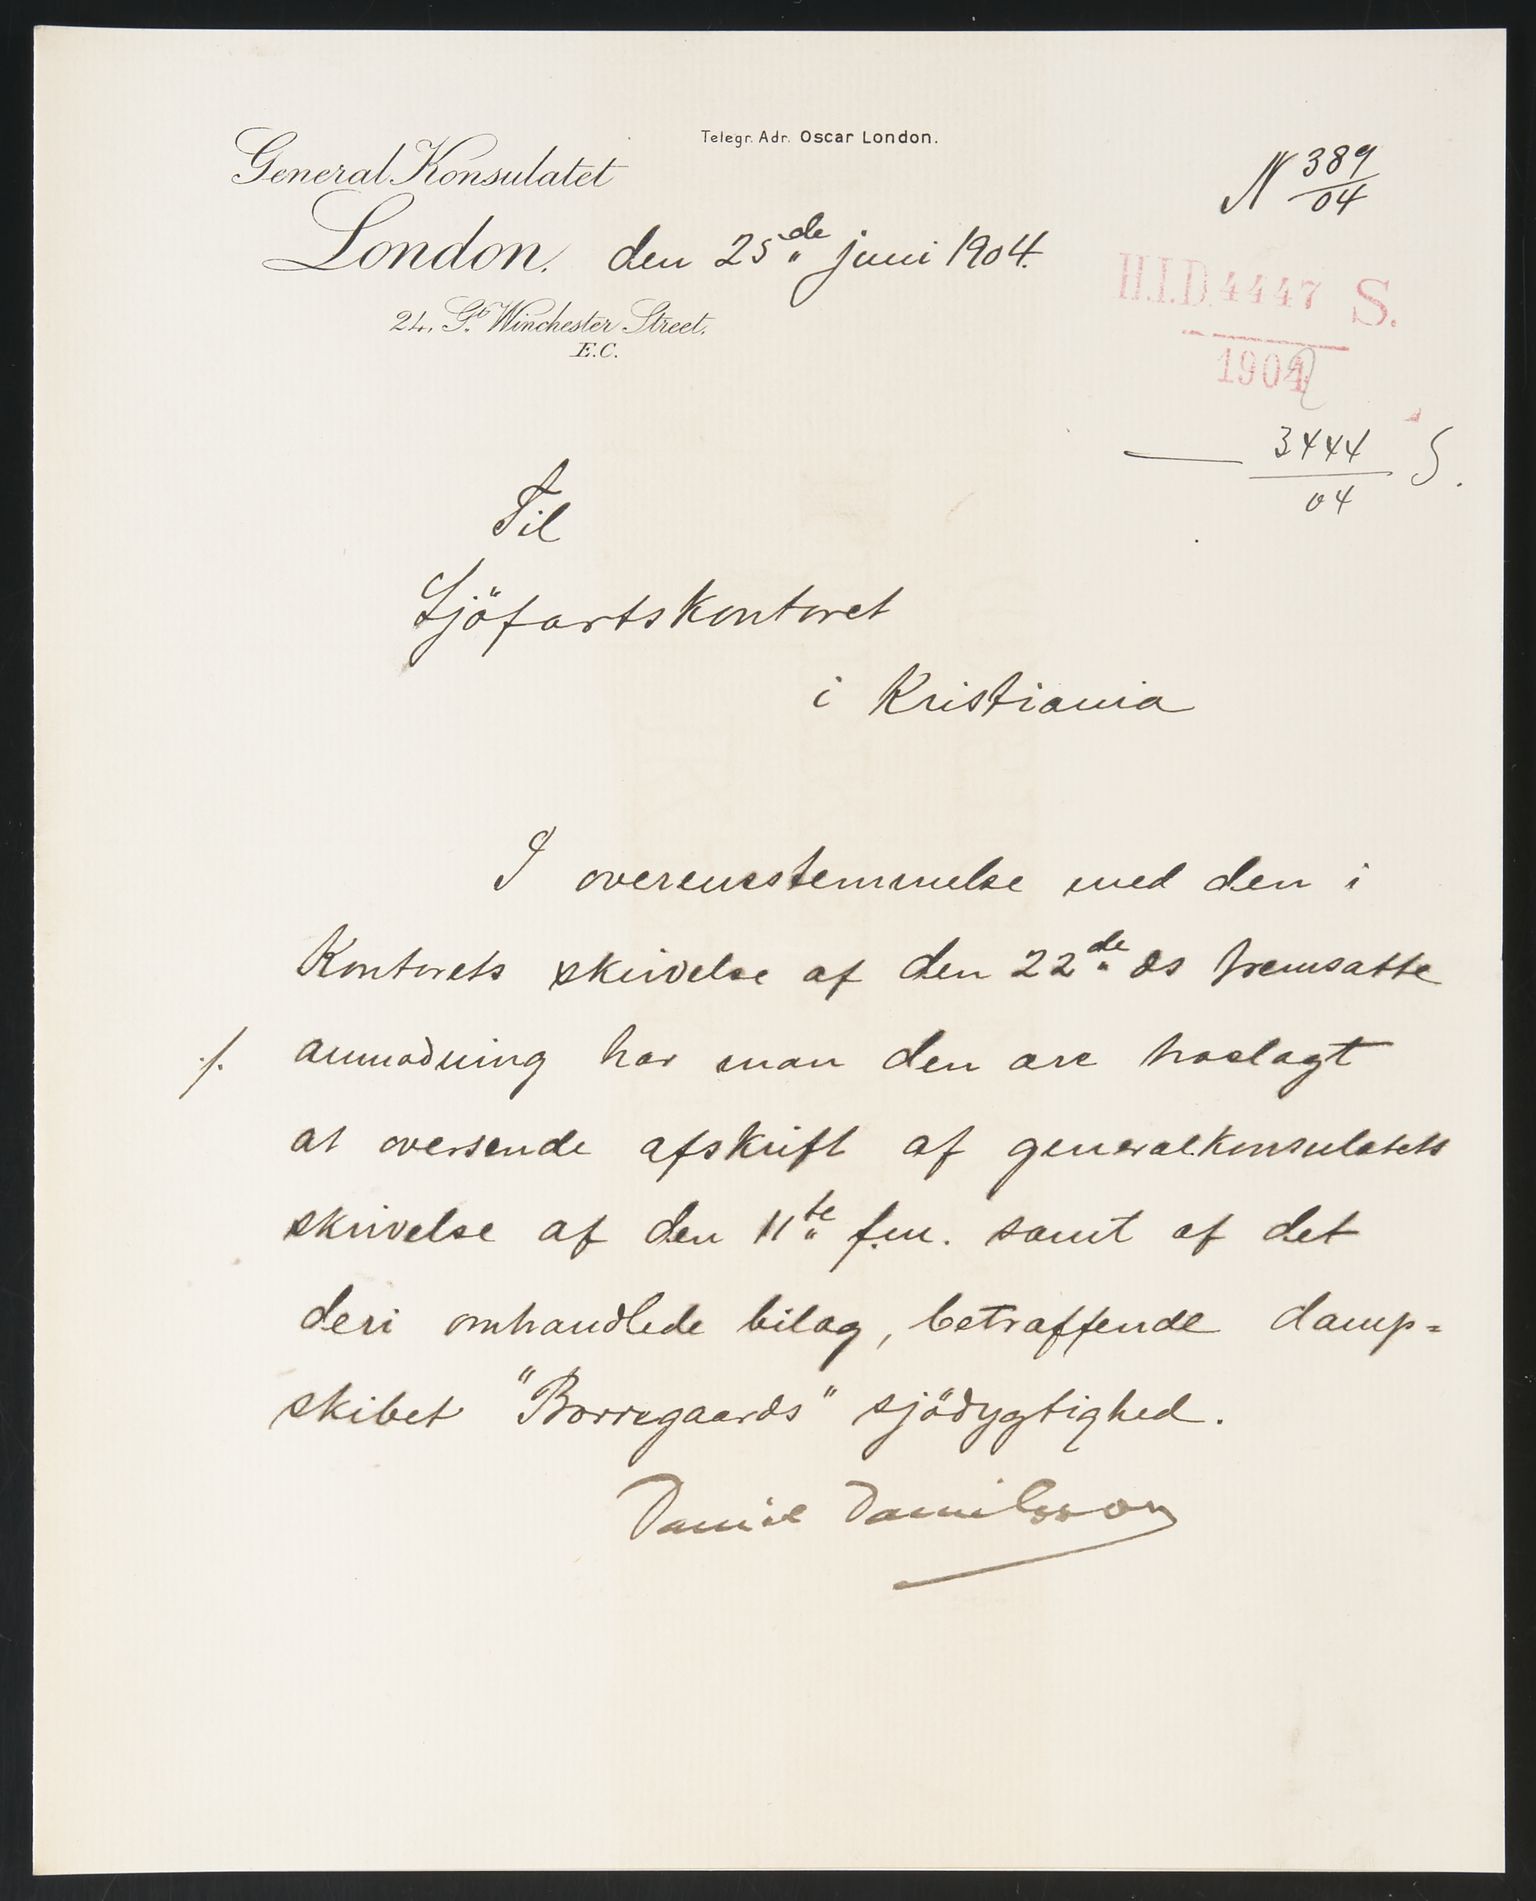 Telegr. Adr. Oscar London.
General Konsulatet
N 389/04
London. den 25de juni 1904.
24, Gt. Winchester Street.
E.C.
H.I.D. 4447 S.
1904
3444/04 S.
Til
Sjöfartskontoret
i Kristiania
I overensstemmelse med den i
Kontorets skrivelse af den 22de ds fremsatte
./. anmodning har man den ære hoslagt
at oversende afskrift af generalkonsulatets
skrivelse af den 11te f.m. samt af det
deri omhandlede bilag, betræffende damp=
skibet "Borregaards" sjödygtighed.
Daniel Danielsson